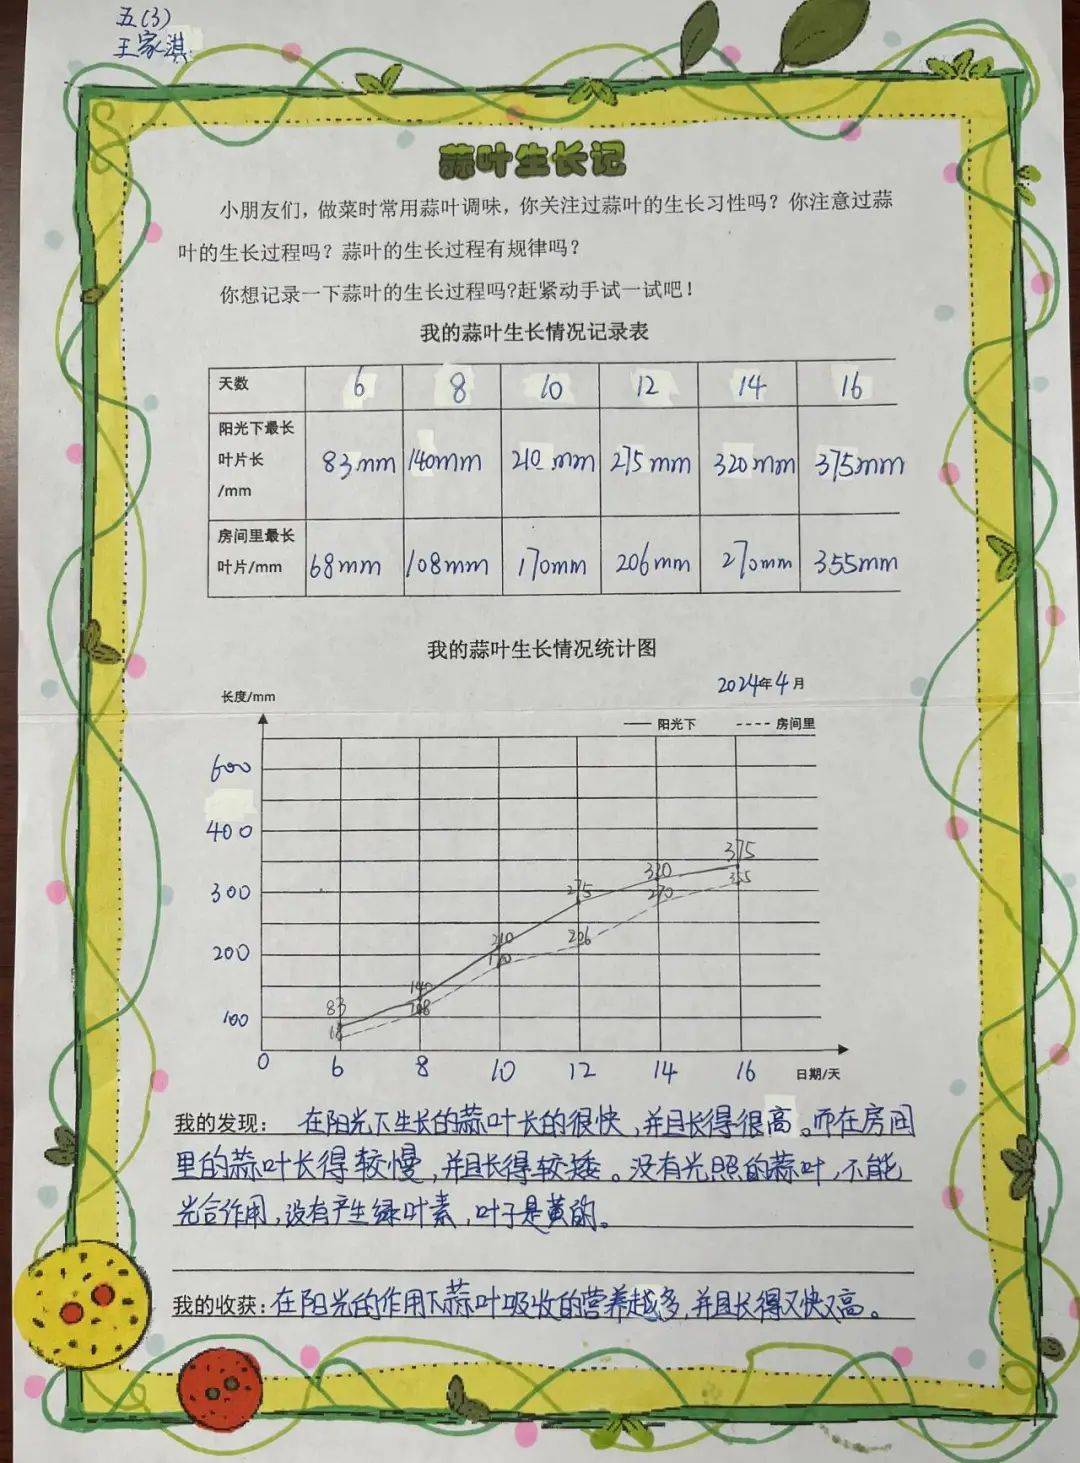 五(3)
王家淇
蒜叶生长记
小朋友们，做菜时常用蒜叶调味，你关注过蒜叶的生长习性吗？你注意过蒜
叶的生长过程吗？蒜叶的生长过程有规律吗？
你想记录一下蒜叶的生长过程吗?赶紧动手试一试吧！
我的蒜叶生长情况记录表
天数 6 8 10 12 14 16
阳光下最长
叶片长 83mm 140mm 210mm 275mm 320mm 375mm
/mm
房间里最长
叶片/mm 68mm 108mm 170mm 206mm 270mm 355mm
我的蒜叶生长情况统计图
2024年4月
长度/mm
阳光下 房间里
600
400
375
320
355
300 275 270
210 206
200 170
140
83 108
100 68
0 6 8 10 12 14 16 日期/天
我的发现：在阳光下生长的蒜叶长的很快，并且长得很高。而在房间
里的蒜叶长得较慢，并且长得较矮。没有光照的蒜叶，不能
光合作用，没有产生绿叶素，叶子是黄的。
我的收获：在阳光的作用下蒜叶吸收的营养越多，并且长得又快又高。